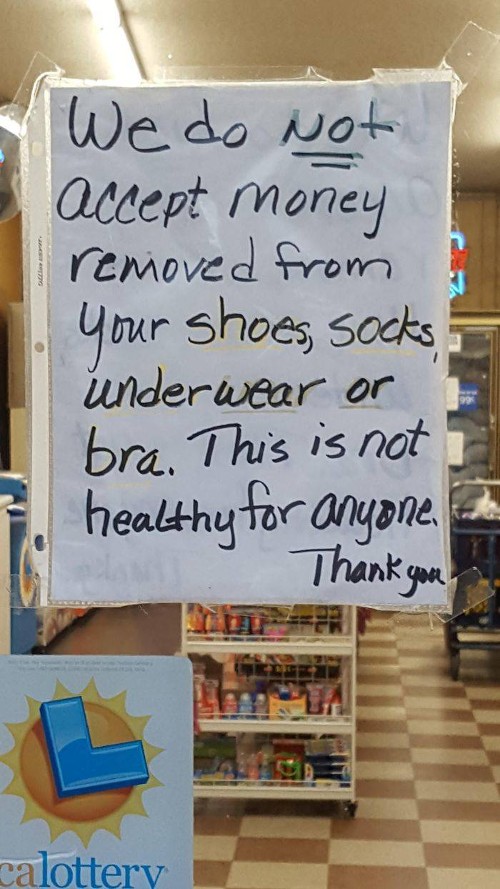 We do Not
accept money
removed from
your shoes, socks,
underwear or
bra. This is not
healthy for anyone.
Thank you
calottery